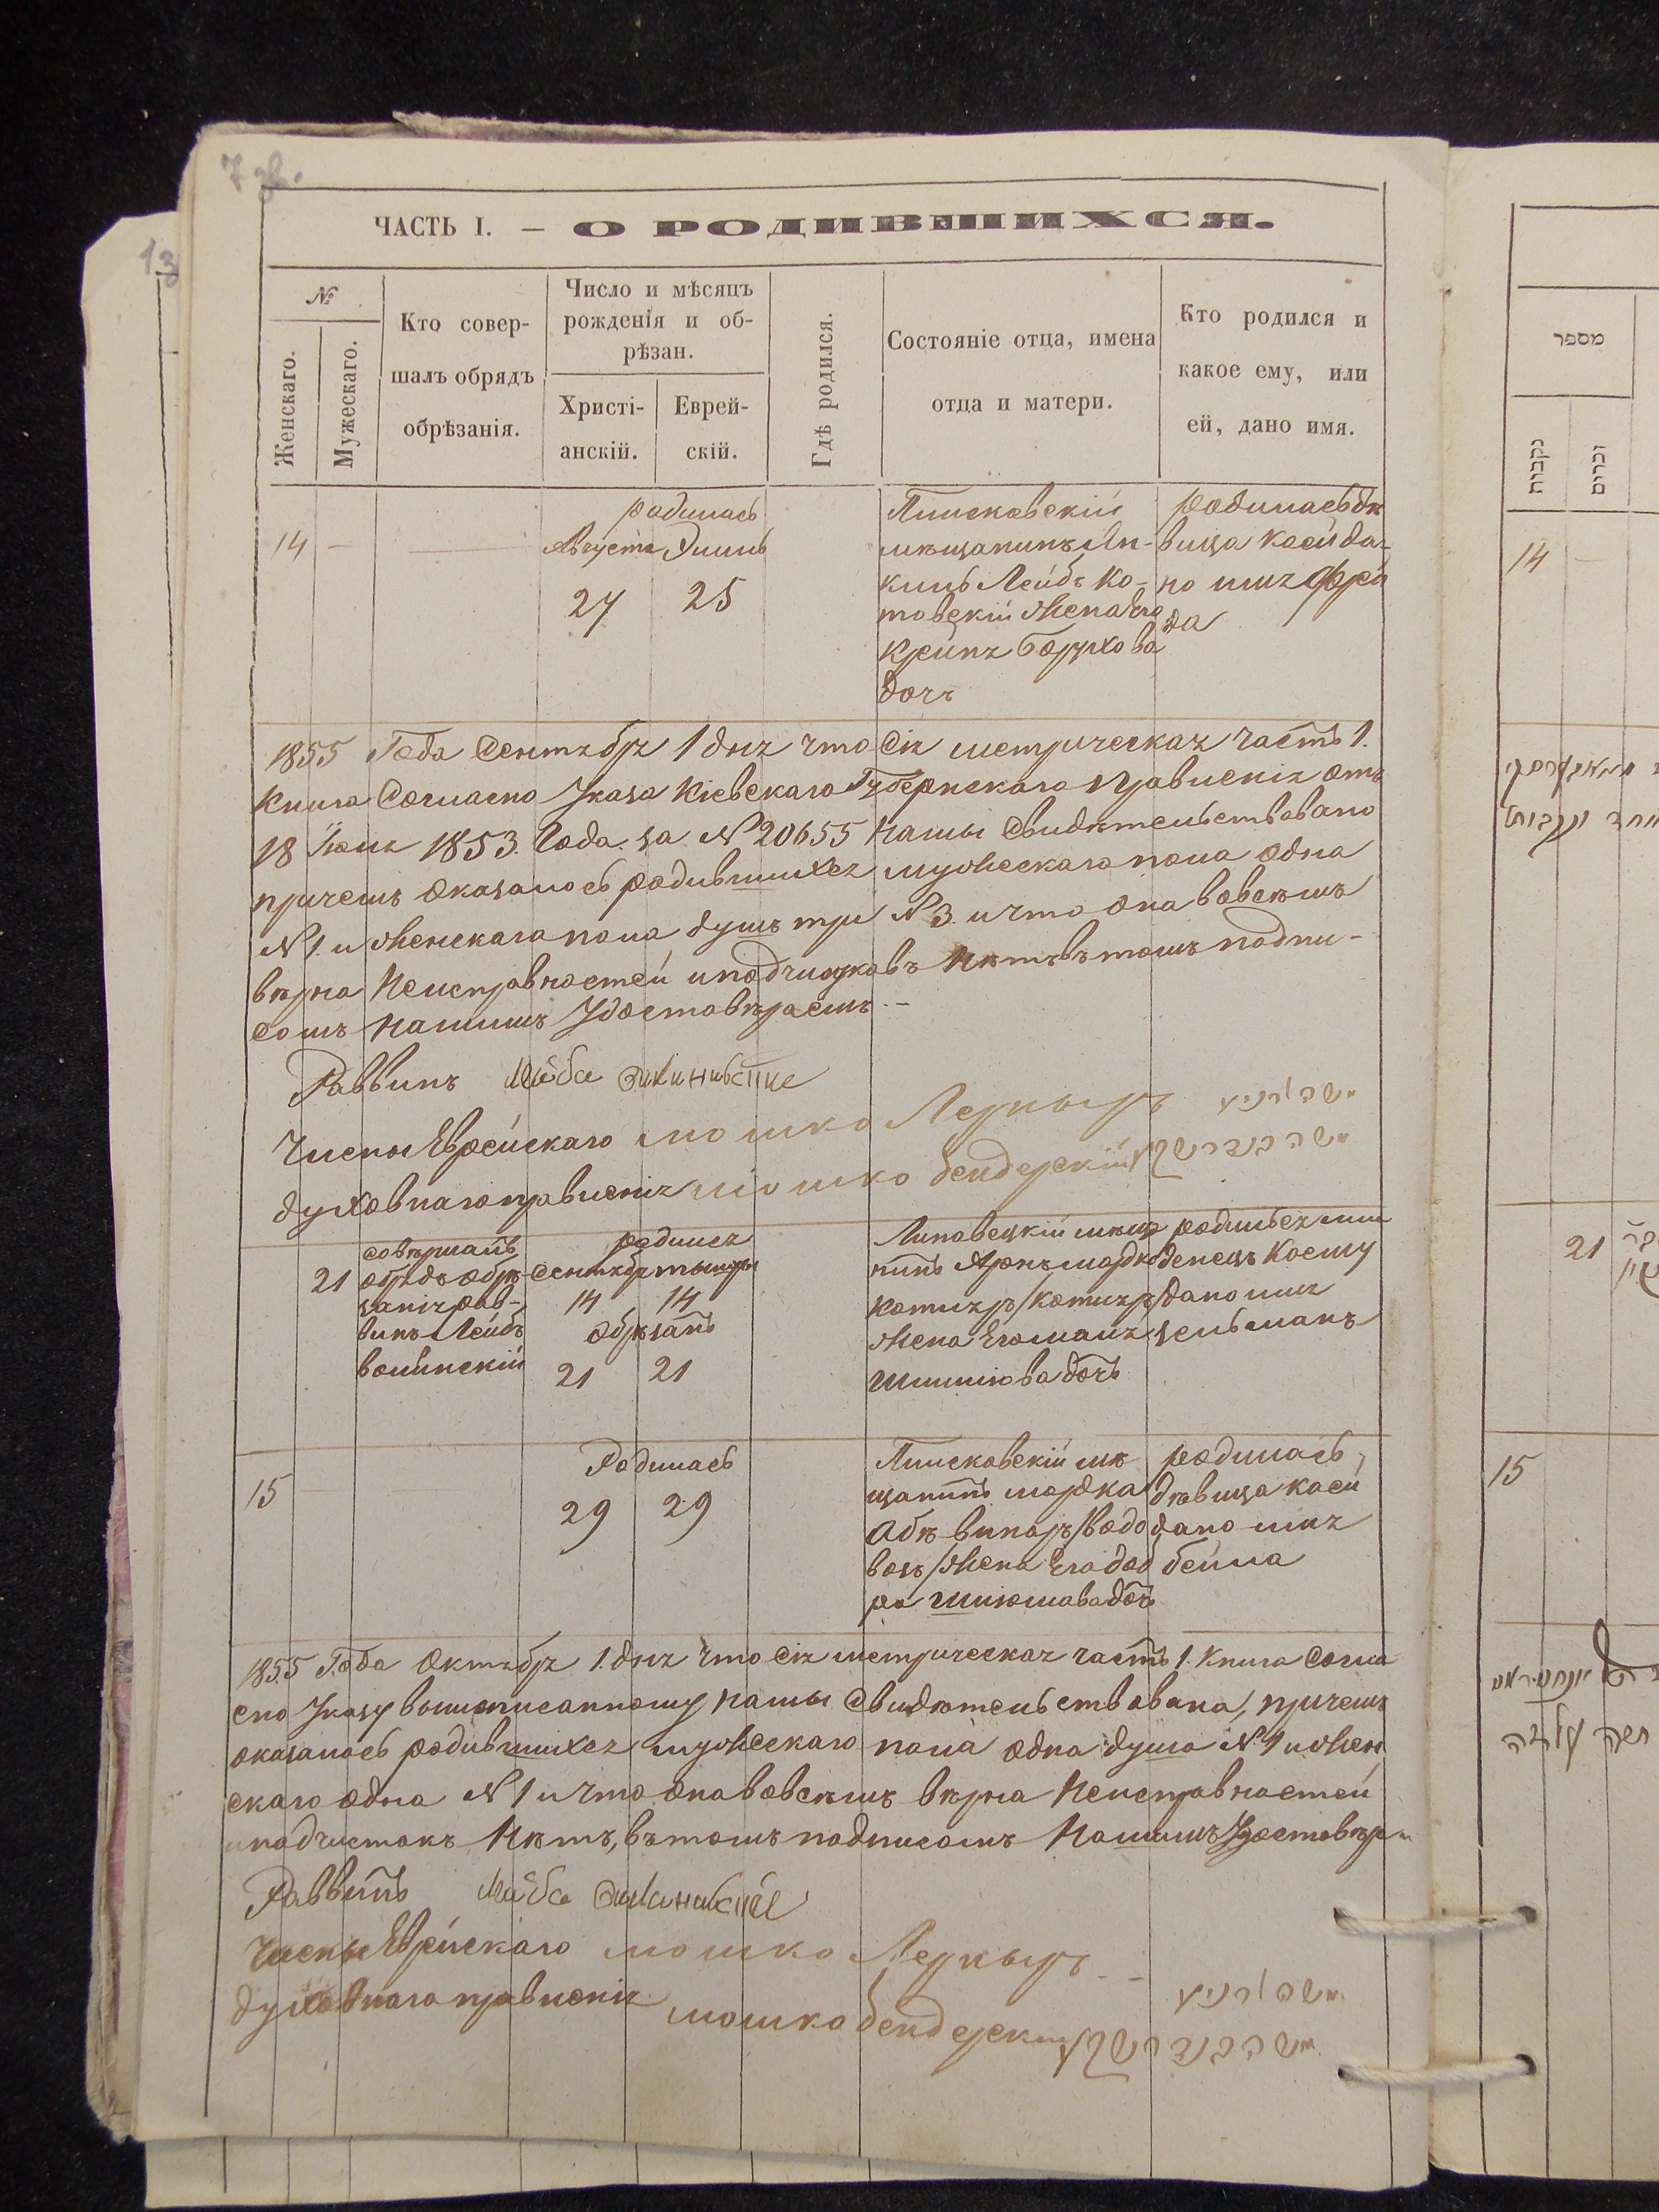 7 зв.
13
ЧАСТЬ I. — О РОДИВШИХСЯ.
№
Женскаго.
Мужескаго.
Кто совер-
шалъ обрядъ
обрѣзанія.
Число и мѣсяцъ
рожденія и об-
рѣзан.
Христі-
анскій.
Еврей-
скій.
Гдѣ родился.
Состояніе отца, имена
отца и матери.
Кто родился и
какое ему, или
ей, дано имя.
14 —
родилась
Августа Элиль
27 25
мѣщанинъ Ян-
кель Лейбъ Ко-
товскій жена Его
Крейня Борухова
дочь
родиласьдѣ
вица коей да-
но имя Фрей
да
1855 Года Сентября 1 дня что Сія метрическая часть 1.
Книга Согласно Указа Кіевскаго Губернскаго Правленія отъ
18 Іюля 1853. Года. за № 20655 Нами Свидѣтельствовано
причемъ оказалось родившихся мужескаго пола одна
№ 1. и женскаго пола душъ три № 3. и что она вовсемъ
вѣрна Неисправностей и подчистковъ Нѣтъ въ томъ подпи-
сомъ Нашимъ Удостовѣраемъ. —
Раввинъ
Члены Еврейскаго мошко Лерныръ
духовнаго правленія мошко бендерскій
21
Совѣршалъ
обрядъ обрѣ-
занія рав-
винъ Лейбъ
волинскій
родился
Сентября тышры
14 14
Обрѣзанъ
21 21
Липовецкій мѣща
нинъ Аронъ мордко
котляръ /котляръ/
жена Его маля
Шлиомова дочь
родился мла
денецъ Коему
дано имя
зельманъ
15
Родилась
29 29
щанинъ мордка
Абъ винаръ /Водо
возъ/ жена Его доб
ра Шлиомова дочь
родилась
дѣвица коей
дано имя
бейла
1855 Года Октября 1. дня что Сія метрическая часть 1. Книга Согла
сно Указу вышеписанному нами Свидѣтельствована, причемъ
оказалось родившихся мужескаго пола одна душа № 1 и жен
скаго одна № 1 и что она вовсемъ вѣрна Неисправностей
и подчистокъ Нѣтъ, въ томъ подписомъ Нашимъ Удостовѣр
Раввинъ
Члены Еврейскаго мошко Лерныръ
духовнаго правленія мошко бендерскій
מספר
נקבות
זכרים
14 —
21
15